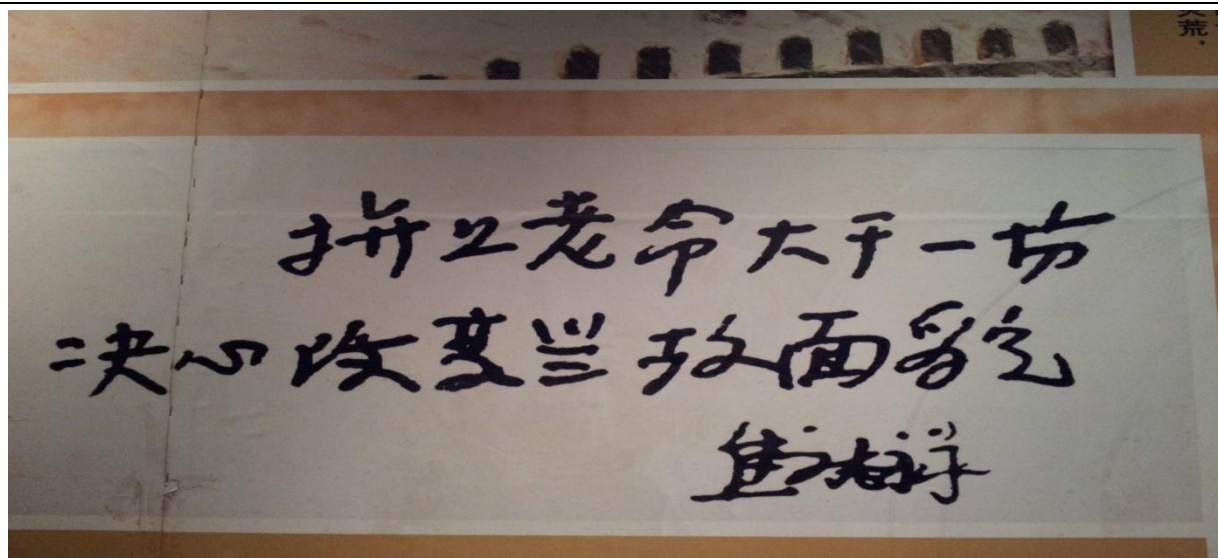 荒，
拼上老命大干一场
决心改变兰攷面貌
焦裕禄